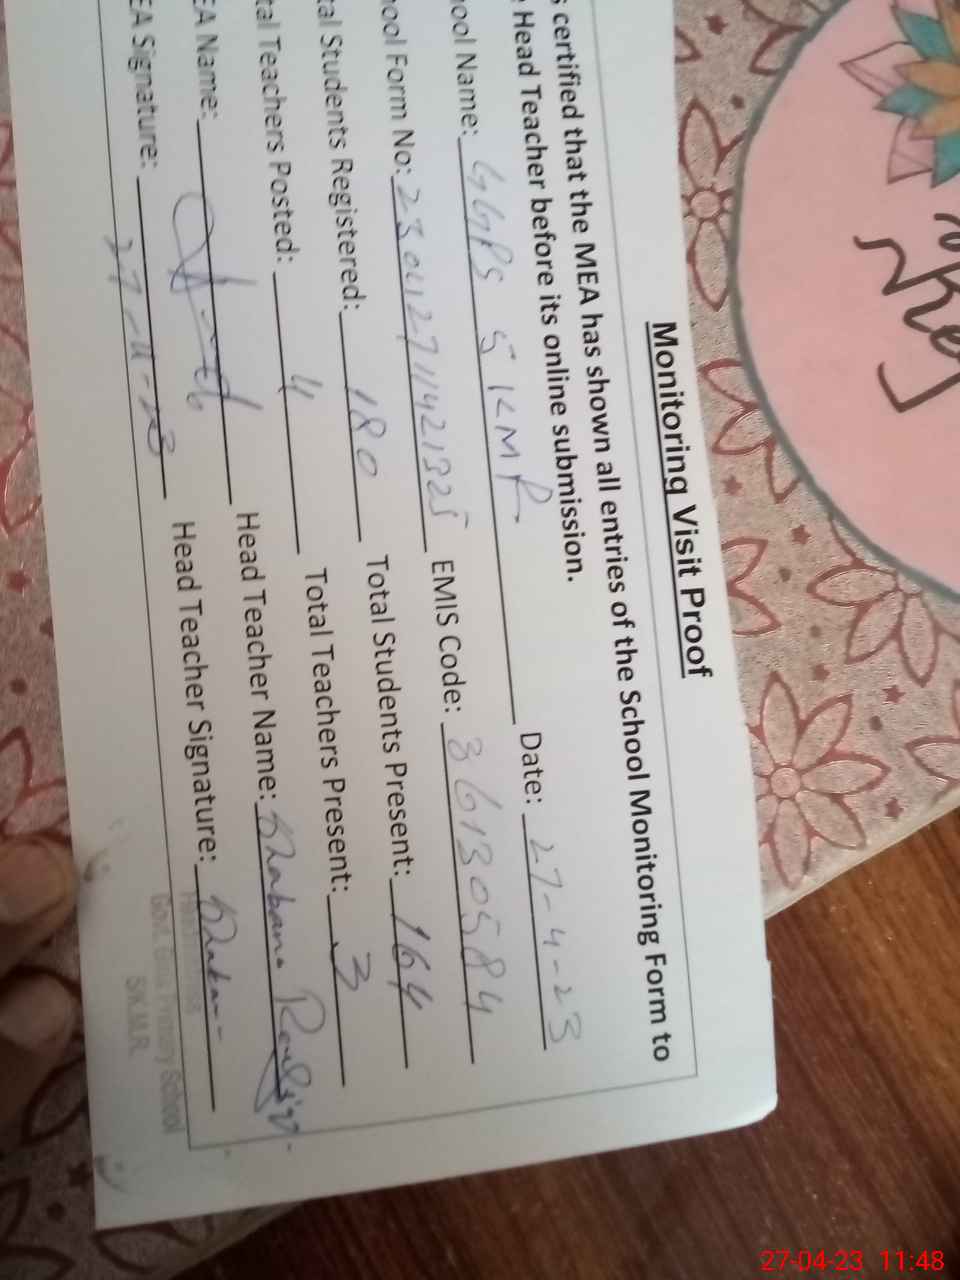 Monitoring Visit Proof
s certified that the MEA has shown all entries of the School Monitoring Form to
Head Teacher before its online submission.
ool Name: GGPS SIKMR Date: 27-4-23
ool Form No: EMIS Code: 36130584
tal Students Registered: 180 Total Students Present: 164
tal Teachers Posted: 4 Total Teachers Present: 3
EA Name: Head Teacher Name: Shabana
EA Signature: Head Teacher Signature: Shaban
Govt. Girls Primary School
27-04-23 11:48